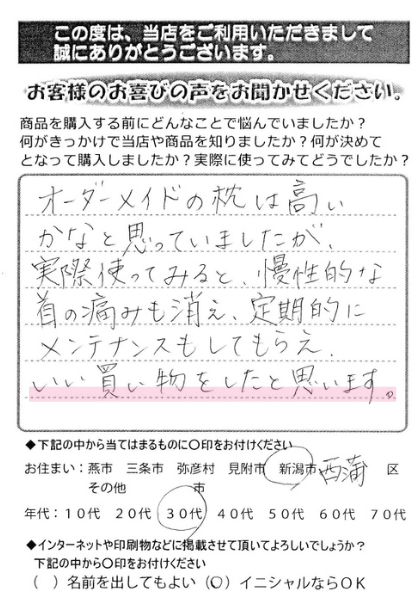 この度は、当店をご利用いただきまして
誠にありがとうございます。
お客様のお喜びの声をお聞かせください。
商品を購入する前にどんなことで悩んでいましたか？
何がきっかけで当店や商品を知りましたか？何が決めて
となって購入しましたか？実際に使ってみてどうでしたか？
オーダーメイドの枕は高い
かなと思っていましたが、
実際使ってみると、慢性的な
首の痛みも消え、定期的に
メンテナンスもしてもらえ、
いい買い物をしたと思います。
◆下記の中から当てはまるものに〇印をお付けください
お住まい：燕市 三条市 弥彦村 見附市 新潟市 西蒲 区
その他 市
年代：10代 20代 30代 40代 50代 60代 70代
◆インターネットや印刷物などに掲載させて頂いてよろしいでしょうか？
下記の中から〇印をお付けください
（ ）名前を出してもよい（〇）イニシャルならＯＫ